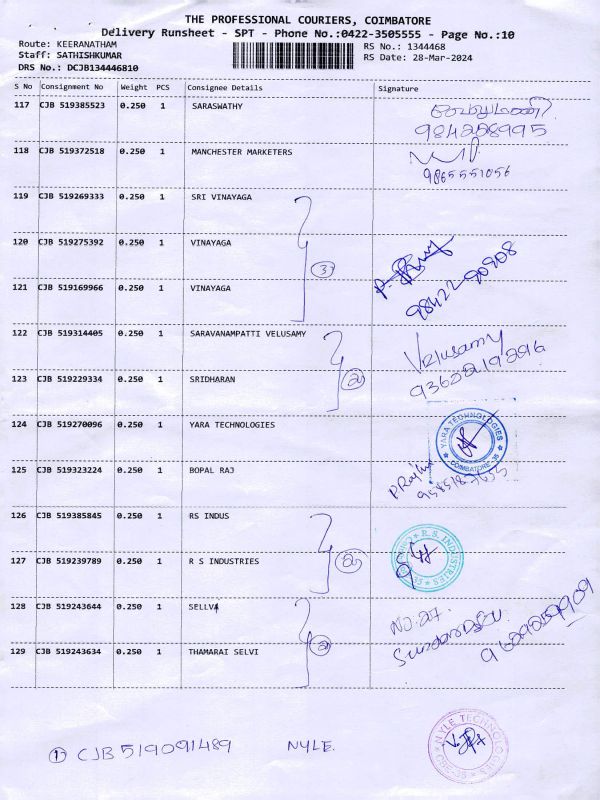 THE PROFESSIONAL COURIERS, COIMBATORE
Delivery Runsheet - SPT - Phone No.:0422-3505555 - Page No.:10
Route: KEERANATHAM
RS No.: 1344468
Staff: SATHISHKUMAR
RS Date: 28-Mar-2024
DRS No.: DCJB134446810
S No Consignment No Weight PCS Consignee Details Signature
117 CJB 519385523 0.250 1 SARASWATHY
984258995
118 CJB 519372518 0.250 1 MANCHESTER MARKETERS
9865551056
119 CJB 519269333 0.250 1 SRI VINAYAGA
120 CJB 519275392 0.250 1 VINAYAGA
3
98422-90908
121 CJB 519169966 0.250 1 VINAYAGA
122 CJB 519314405 0.250 1 SARAVANAMPATTI VELUSAMY
Velusamy
123 CJB 519229334 0.250 1 SRIDHARAN
2
124 CJB 519270096 0.250 1 YARA TECHNOLOGIES
YARA TECHNOLOGIES
COIMBATORE-35
125 CJB 519323224 0.250 1 BOPAL RAJ
126 CJB 519385845 0.250 1 RS INDUS
127 CJB 519239789 0.250 1 R S INDUSTRIES
2
R.S. INDUSTRIES
128 CJB 519243644 0.250 1 SELLVA
129 CJB 519243634 0.250 1 THAMARAI SELVI
2
1 CJB 519091489 NYLE.
NYLE TECHNOLOGIES
CBE-35